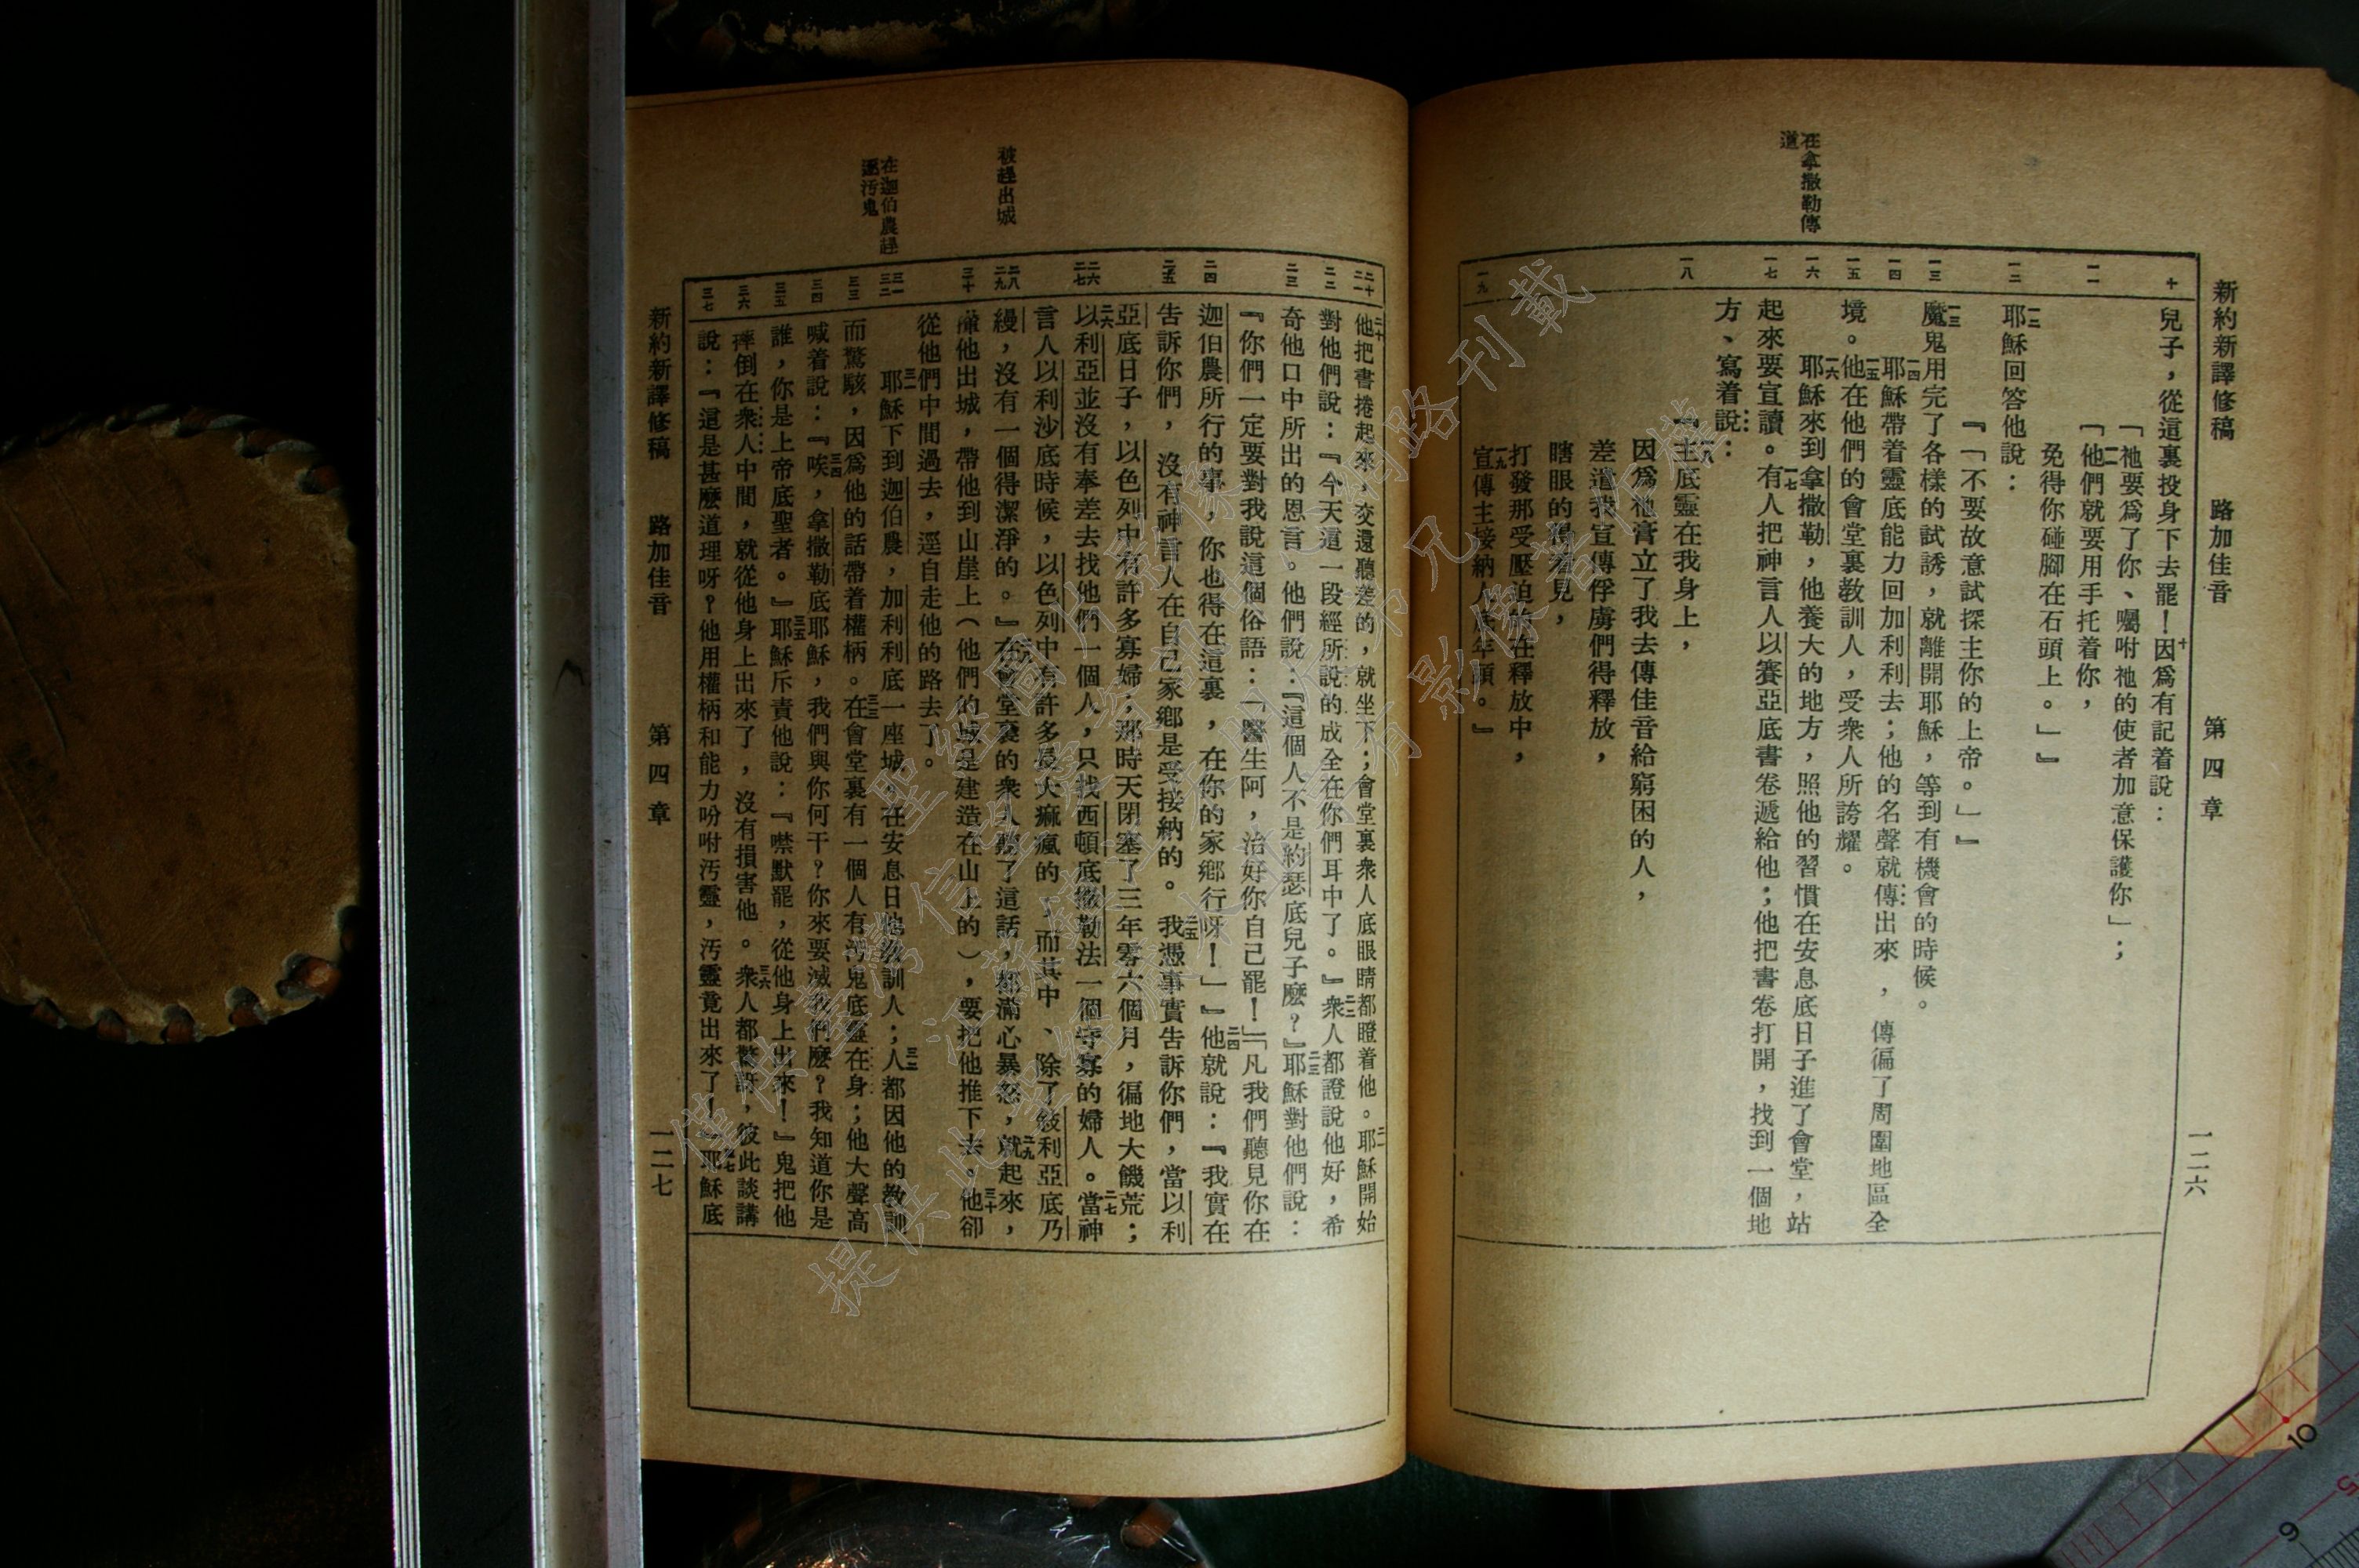 新約新譯修稿　路加佳音　第四章　一二六
在拿撒勒傳
道
十
一一
一二
一三
一四
一五
一六
一七
一八
一九
兒子，從這裏投身下去罷！十因爲有記着說：
「祂要爲了你、囑咐祂的使者加意保護你」；
一一「他們就要用手托着你，
免得你碰腳在石頭上。」』
一二耶穌回答他說：
『「不要故意試探主你的上帝。」』
一三魔鬼用完了各樣的試誘，就離開耶穌，等到有機會的時候。
一四耶穌帶着靈底能力回加利利去；他的名聲就傳出來，傳徧了周圍地區全
境。一五他在他們的會堂裏教訓人，受衆人所誇耀。
一六耶穌來到拿撒勒，他養大的地方，照他的習慣在安息底日子進了會堂，站
起來要宣讀。一七有人把神言人以賽亞底書卷遞給他；他把書卷打開，找到一個地
方、寫着說：
一八『主底靈在我身上，
因爲祂膏立了我去傳佳音給窮困的人，
差遣我宣傳俘虜們得釋放，
瞎眼的得看見，
打發那受壓迫的在釋放中，
一九宣傳主接納人底年頭。』
被趕出城
在迦伯農趕
逐汚鬼
二十
二一
二二
二三
二四
二五
二六
二七
二八
二九
三十
三一
三二
三三
三四
三五
三六
三七
二十他把書捲起來，交還聽差的，就坐下；會堂裏衆人底眼睛都瞪着他。二一耶穌開始
對他們說：『今天這一段經所說的成全在你們耳中了。』二二衆人都證說他好，希
奇他口中所出的恩言。他們說：『這個人不是約瑟底兒子麼？』二三耶穌對他們說：
『你們一定要對我說這個俗語：「醫生阿，治好你自己罷！」「凡我們聽見你在
迦伯農所行的事，你也得在這裏，在你的家鄉行呀！」』二四他就說：『我實在
告訴你們，沒有神言人在自己家鄉是受接納的。二五我憑事實告訴你們，當以利
亞底日子，以色列中有許多寡婦；那時天閉塞了三年零六個月，徧地大饑荒；
二六以利亞並沒有奉差去找他們一個人，只找西頓底撒勒法一個守寡的婦人。二七當神
言人以利沙底時候，以色列中有許多長大痲瘋的，而其中、除了敍利亞底乃
縵，沒有一個得潔淨的。』二八在會堂裏的衆人聽了這話，都滿心暴怒，二九就起來，
攆他出城，帶他到山崖上（他們的城是建造在山上的），要把他推下去。三十他卻
從他們中間過去，逕自走他的路去了。
三一耶穌下到迦伯農，加利利底一座城，在安息日他教訓人；三二人都因他的教訓
而驚駭，因爲他的話帶着權柄。三三在會堂裏有一個人有汚鬼底靈在身；他大聲高
喊着說：三四『唉，拿撒勒底耶穌，我們與你何干？你來要滅我們麼？我知道你是
誰，你是上帝底聖者。』三五耶穌斥責他說：『噤默罷，從他身上出來！』鬼把他
摔倒在衆人中間，就從他身上出來了，沒有損害他。三六衆人都驚訝，彼此談講
說：『這是甚麼道理呀？他用權柄和能力吩咐汚靈，汚靈竟出來了！』三七耶穌底
新約新譯修稿　路加佳音　第四章　一二七